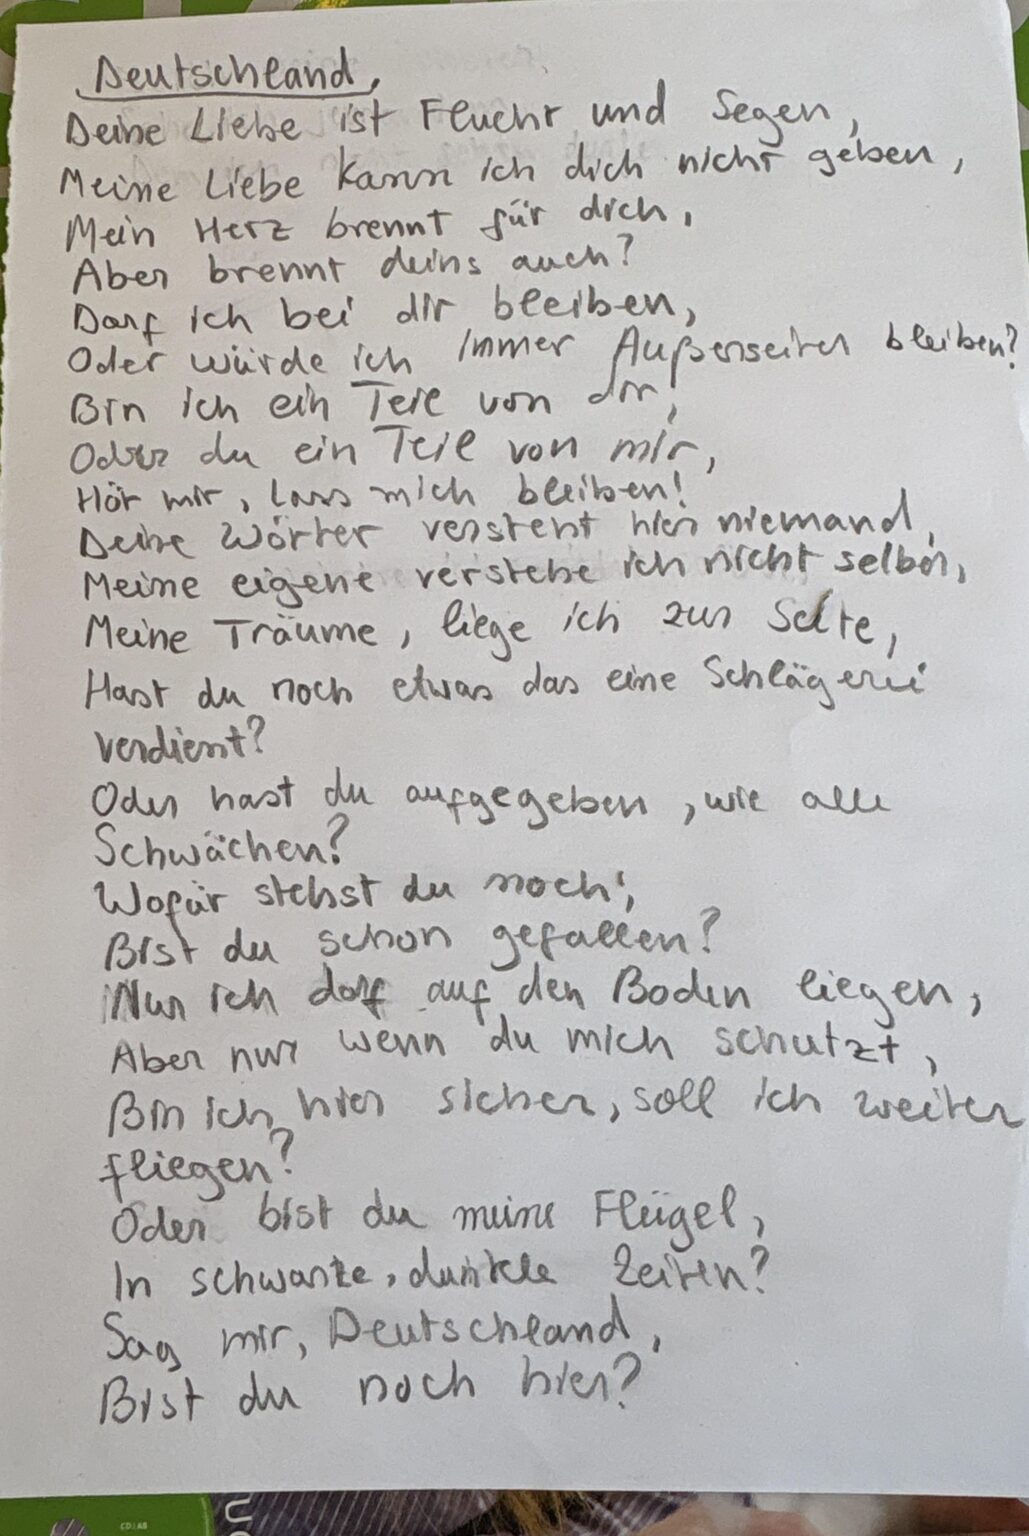 Deutschland,
Deine Liebe ist Flucht und Segen,
Meine Liebe kann ich dich nicht geben,
Mein Herz brennt für dich,
Aber brennt deins auch?
Darf ich bei dir bleiben,
Oder würde ich immer Außenseiter bleiben?
Bin ich ein Teil von dir,
Oder du ein Teil von mir,
Hör mir, lass mich bleiben!
Deine Wörter versteht hier niemand,
Meine eigene verstehe ich nicht selber,
Meine Träume, liege ich zur Seite,
Hast du noch etwas das eine Schlägerei
verdient?
Oder hast du aufgegeben, wie alle
Schwächen?
Wofür stehst du noch,
Bist du schon gefallen?
Nur ich darf auf den Boden liegen,
Aber nur wenn du mich schutzt,
Bin ich hier sicher, soll ich weiter
fliegen?
Oder bist du meine Flügel,
In schwarze, dunkle Zeiten?
Sag mir, Deutschland,
Bist du noch hier?